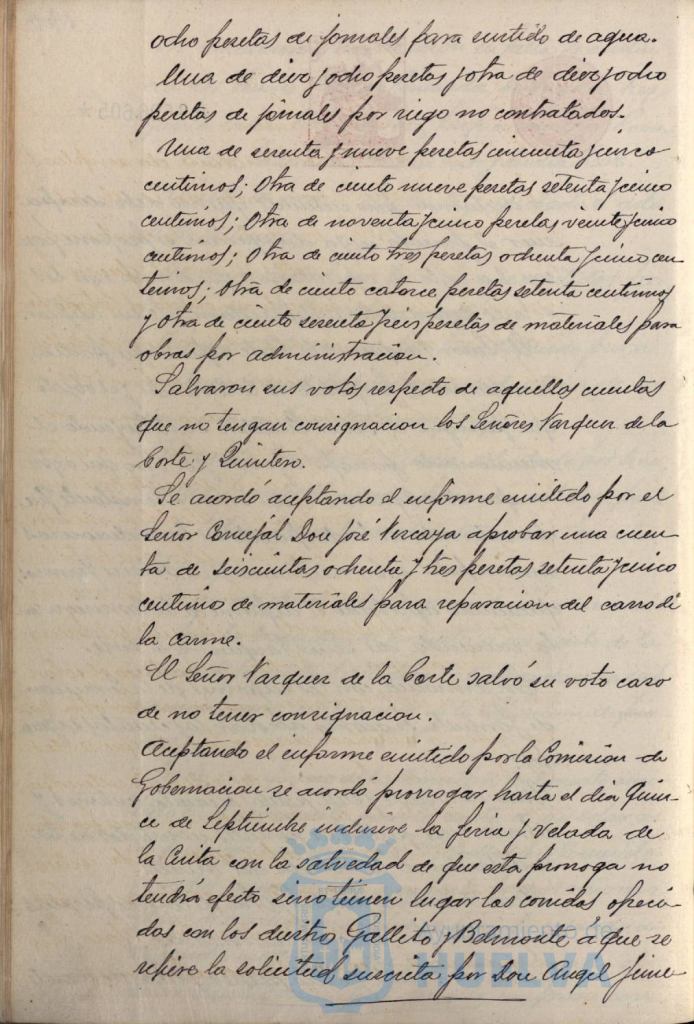 ocho pesetas de jornales para surtido de agua.
Una de diez y ocho pesetas y otra de diez y ocho
pesetas de jornales por riego no contratados.
Una de sesenta y nueve pesetas cincuenta y cinco
centimos; Otra de ciento nueve pesetas setenta y cinco
centimos; Otra de noventa y cinco pesetas veinte y cinco
centimos; Otra de ciento tres pesetas ochenta y cinco cen-
timos; Otra de ciento catorce pesetas setenta centimos
y otra de ciento sesenta y seis pesetas de materiales para
obras por administracion.
Salvaron sus votos respecto de aquellas cuentas
que no tengan consignacion los Señores Vazquez de la
Corte y Quintero.
Se acordó aceptando el informe emitido por el
Señor Concejal Don José Vizcaya aprobar una cuen-
ta de seiscientas ochenta y tres pesetas setenta y cinco
centimos de materiales para reparacion del carro de
la carne.
El Señor Vazquez de la Corte salvó su voto caso
de no tener consignacion.
Aceptando el informe emitido por la Comision de
Gobernacion se acordó prorrogar hasta el dia Quin-
ce de Septiembre inclusive la feria y velada de
la Cinta con la salvedad de que esta prorroga no
tendrá efecto sino tienen lugar las corridas ofreci-
das con los diestros Gallito y Belmonte á que se
refiere la solicitud suscrita por Don Angel Jime-
Ayuntamiento de
HUELVA